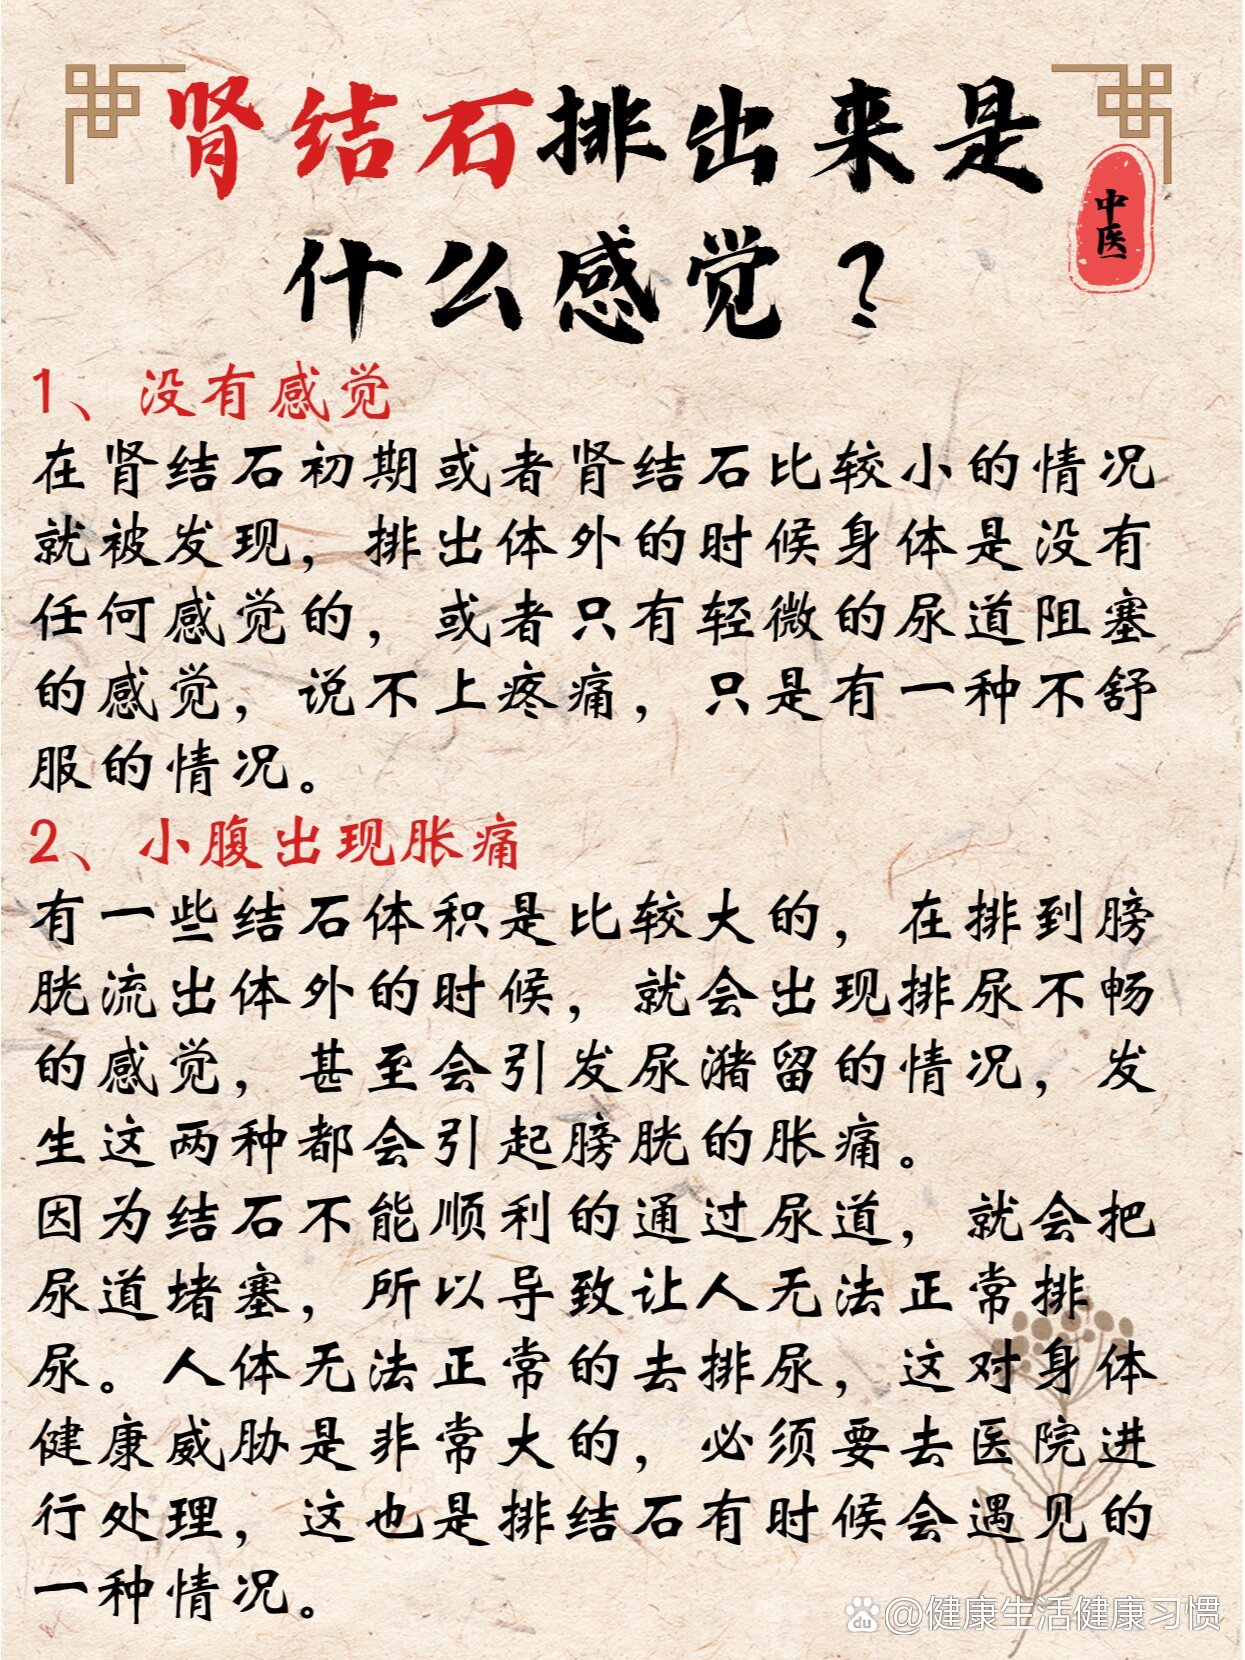 肾结石排出来是
什么感觉？
中医
1、没有感觉
在肾结石初期或者肾结石比较小的情况
就被发现，排出体外的时候身体是没有
任何感觉的，或者只有轻微的尿道阻塞
的感觉，说不上疼痛，只是有一种不舒
服的情况。
2、小腹出现胀痛
有一些结石体积是比较大的，在排到膀
胱流出体外的时候，就会出现排尿不畅
的感觉，甚至会引发尿潴留的情况，发
生这两种都会引起膀胱的胀痛。
因为结石不能顺利的通过尿道，就会把
尿道堵塞，所以导致让人无法正常排
尿。人体无法正常的去排尿，这对身体
健康威胁是非常大的，必须要去医院进
行处理，这也是排结石有时候会遇见的
一种情况。
@健康生活健康习惯